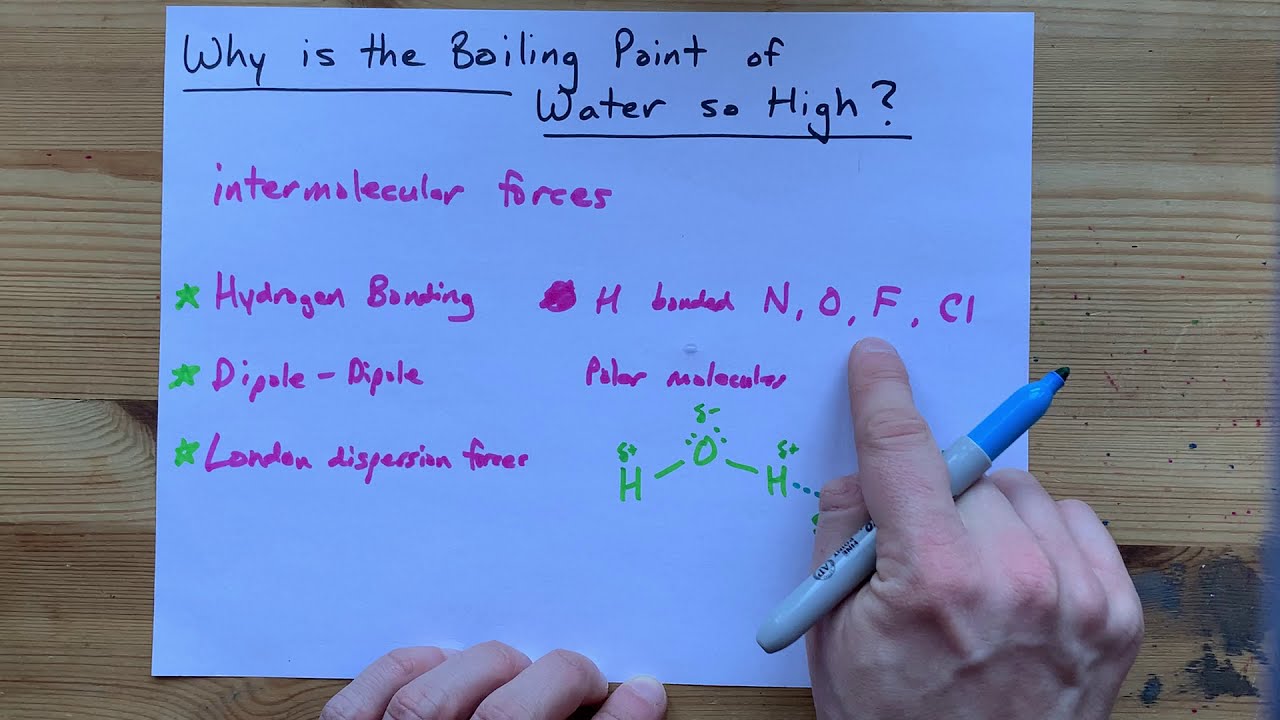 Why is the Boiling Point of
Water so High?
intermolecular forces
Hydrogen Bonding H bonded N, O, F, Cl
Dipole - Dipole Polar molecules
London dispersion forces
δ-
δ+ δ+
H O H
FINE